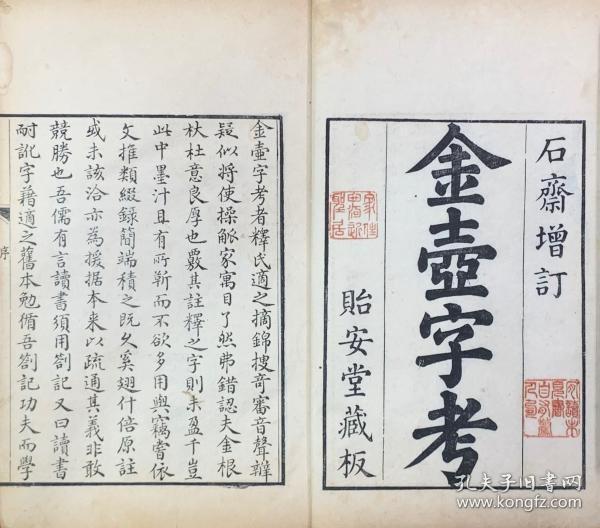 石齋增訂
金壺字考
貽安堂藏板
金壺字考者釋氏適之摘錦搜竒審音聲辨
疑似將使操觚家寓目了然弗錯認夫金根
杕杜意良厚也覈其註釋之字則未盈千豈
此中墨汁且有所靳而不欲多用與竊嘗依
文推類綴録簡端積之既久奚翅什倍原註
或未該洽亦為援据本来以疏通其義非敢
競勝也吾儒有言讀書須用劄記又曰讀書
耐訛字藉適之舊本勉脩吾劄記功夫而學
序
孔夫子旧书网
www.kongfz.com